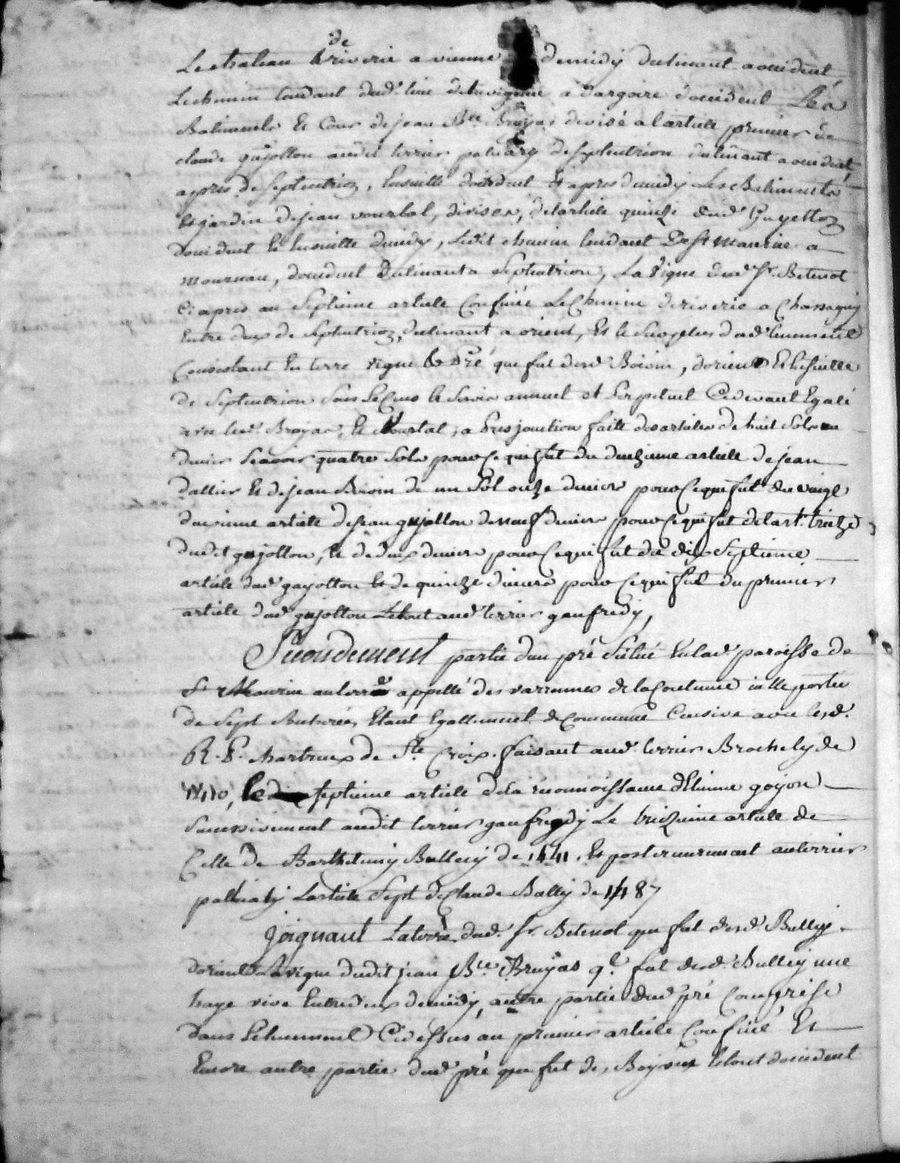 Le chateau de riverie a vienne de midy declinant a occident,
Le chemin tendant dud. lieu de la vigiere a dargoire d'occident Les
Batiments et Cour de jean Bte Bruyas divisé a l'article premier de
claude gujollon audit terrier paluaty de septentrion declinant a occident
apres de septentrion, ensuitte d'occident et apres de midy Les Batiments
et jardin de jean vourlal, divisés, de l'article quinze dud. Guyetton
d'occident et ensuitte de midy, Ledit chemin tendant De St Maurice a
mournan, d'occident declinant a septentrion, La vigne dud. Sr. Betenod
Ci apres au septieme article confinée Le Chemin de riverie a Chassagny
Entre deux de septentrion, declinant a orient, et le surplus dud. tennement
Consistant En terre vigne & pré qui fut desd. Boiron, d'orient Et ensuitte
de septentrion sous Le Cens et servis annuel et perpetuel Cy devant Egalé
avec lesd. Bruyas, et vourlal, a pres jonction faite des articles de huit sols un
denier scavoir quatre sols pour ce qui fut du douzieme article de jean
Dallier et de jean Boiron de un sol onze deniers pour ce qui fut du vingt
deuxieme article de jean gujollon de neuf deniers pour ce qui fut de l'art. treize
dudit gujollon, et de deux deniers, pour ce qui fut du dix septieme
article dud. gayotton et de quinze deniers pour ce qui fut du premier
article dud. gujollon Le tout aud. terrier gaufredy,
Secondement partie d'un pré Scitué En lad. paroisse de
St Maurice au terroir appellé des varennes et de la Coutume icelle portée
de Sept Buterées, Etant Egallement de commune Censive avec lesd.
R.P. chartreux de Ste Croix faisant aud. terrier Brochely de
le dix septieme article de la reconnoissance d'Etienne goyon
successivement audit terrier gaufredy Le treizieme article de
Celle de Barthelemy Bulleiy de 1441, Et posterieurement au terrier
palluaty L'article Sept de Claude Bally de 1487
Joignant La terre dud. Sr. Betenod qui fut desd. Bulliy
d'orient La vigne dudit jean Bte. Bruyas q. fut desd. Bulleiy une
haye vive Entre deux de midy, autre partie dud. pré Comprise
dans Le tennement Cy dessus au premier article Confiné Et
Encore autre partie dud. pré qui fut des Le tout d'occident